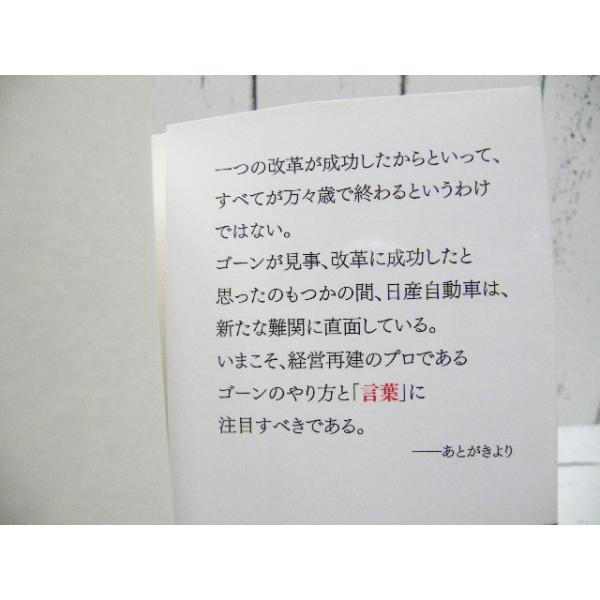 一つの改革が成功したからといって、
すべてが万々歳で終わるというわけ
ではない。
ゴーンが見事、改革に成功したと
思ったのもつかの間、日産自動車は、
新たな難関に直面している。
いまこそ、経営再建のプロである
ゴーンのやり方と「言葉」に
注目すべきである。
――あとがきより